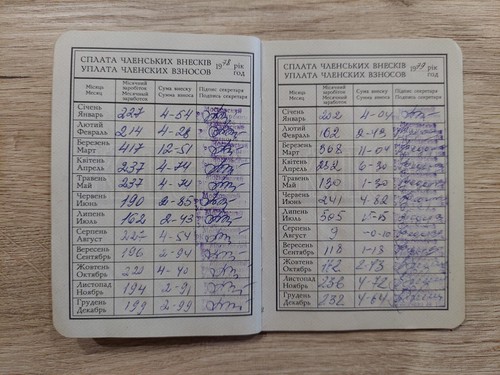 СПЛАТА ЧЛЕНСЬКИХ ВНЕСКІВ
УПЛАТА ЧЛЕНСКИХ ВЗНОСОВ
1978 рік
год
Місяць
Месяц
Місячний заробіток
Месячный заработок
Сума внеску
Сумма взноса
Підпис секретаря
Подпись секретаря
Січень
Январь 227 4-54
Лютий
Февраль 214 4-28
Березень
Март 417 12-51
Квітень
Апрель 237 4-74
Травень
Май 237 4-74
Червень
Июнь 190 2-85
Липень
Июль 162 2-43
Серпень
Август 227 4-54
Вересень
Сентябрь 196 2-94
Жовтень
Октябрь 220 4-40
Листопад
Ноябрь 194 2-91
Грудень
Декабрь 199 2-99
СПЛАТА ЧЛЕНСЬКИХ ВНЕСКІВ
УПЛАТА ЧЛЕНСКИХ ВЗНОСОВ
1979 рік
год
Місяць
Месяц
Місячний заробіток
Месячный заработок
Сума внеску
Сумма взноса
Підпис секретаря
Подпись секретаря
Січень
Январь 202 4-04
Лютий
Февраль 162 2-43
Березень
Март 368 11-04
Квітень
Апрель
Травень
Май 130 1-30
Червень
Июнь 241 4-82
Липень
Июль 505 15-15
Серпень
Август 9 -0-10
Вересень
Сентябрь 118 1-18
Жовтень
Октябрь
Листопад
Ноябрь 236 4-72
Грудень
Декабрь 232 4-64